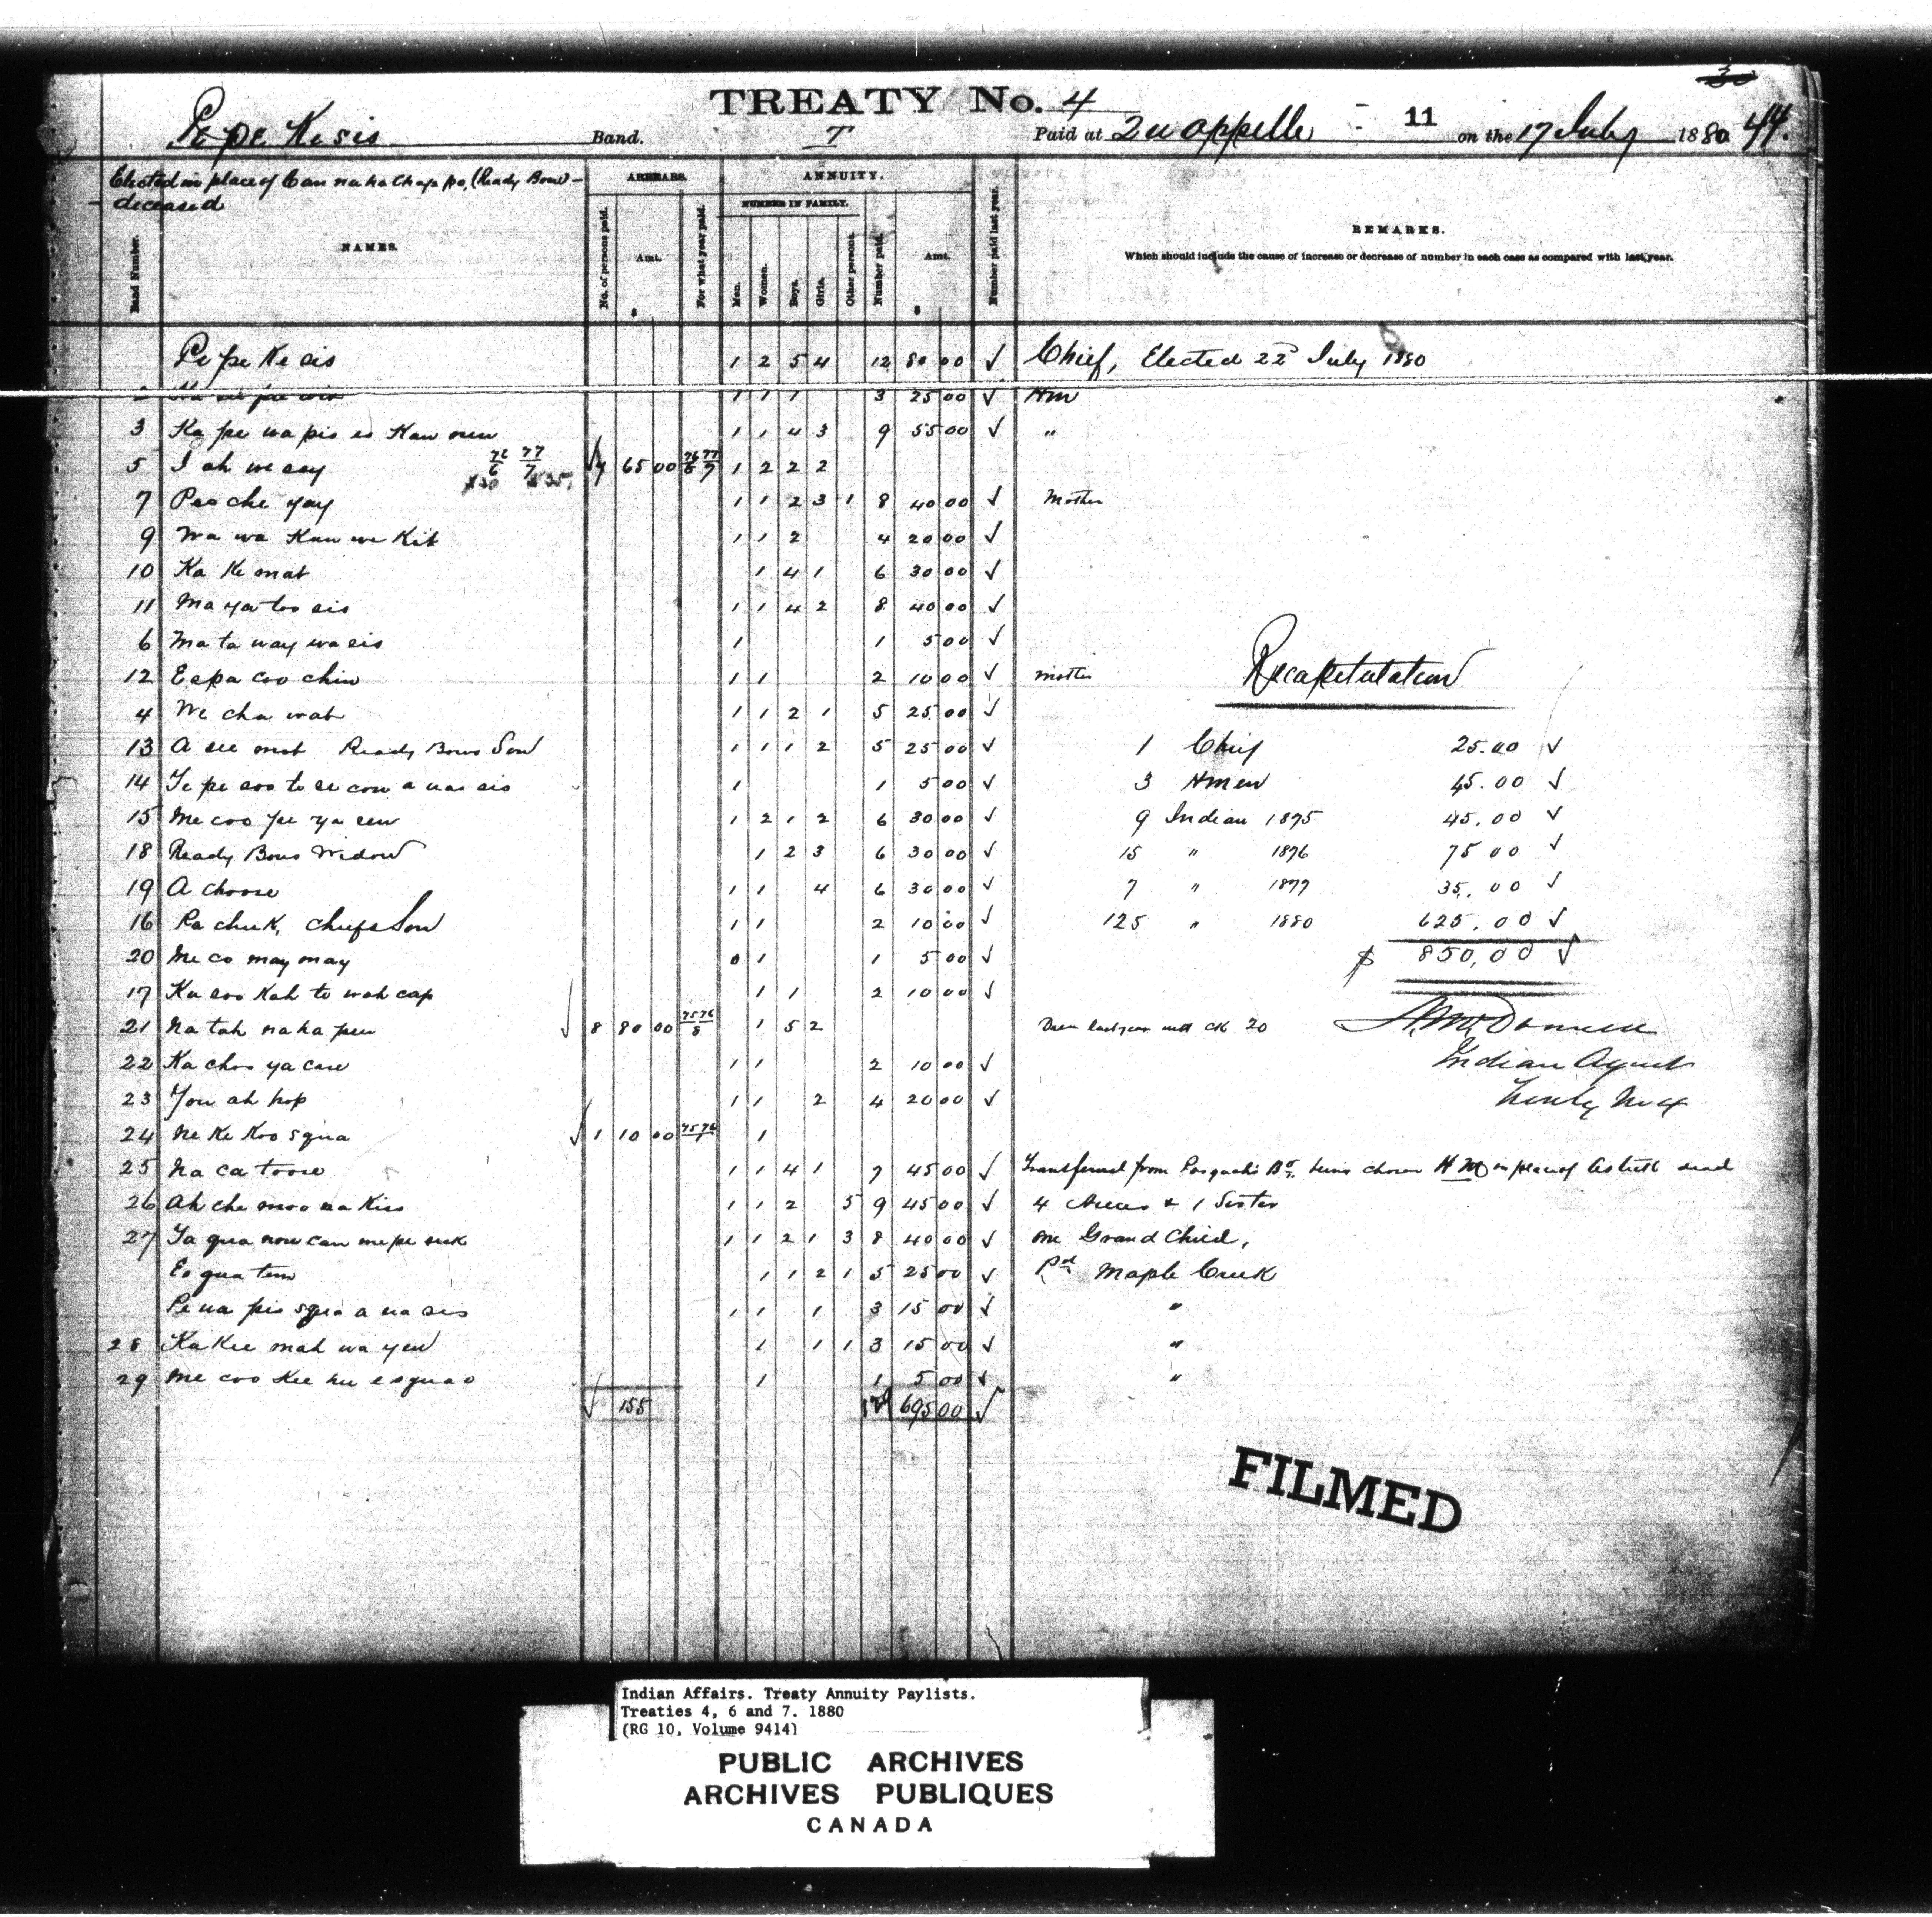 TREATY No. 4
11
44.
Pepe Kesis Band. T Paid at Quappelle on the 17 July 1880
Elected in place of Can na ha chap po, (Ready Bow) -
deceased
ARREARS. ANNUITY.
NUMBER IN FAMILY.
Band Number. NAMES. No. of persons paid. Amt. $ For what year paid. Men. Women. Boys. Girls. Other persons. Number paid. Amt. $ Number paid last year. REMARKS.
Which should include the cause of increase or decrease of number in each case as compared with last year.
Pe pe Ke sis 1 2 5 4 12 80 00 ✓ Chief, Elected 22nd July 1880
1 1 1 3 25 00 ✓ Hm
3 Ka pe na pis es Kaw new 1 1 4 3 9 55 00 ✓ "
5 I ah we say 76/6 77/7 $30 $35 ✓ 7 65 00 76/6 77/7 1 2 2 2
7 Pee che yay 1 1 2 3 1 8 40 00 ✓ Mother
9 Wa wa Kan we Kit 1 1 2 4 20 00 ✓
10 Ka Ke mat 1 4 1 6 30 00 ✓
11 Ma ya too sis 1 1 4 2 8 40 00 ✓
6 Ma ta way wa sis 1 1 5 00 ✓
12 Espa coo chin 1 1 2 10 00 ✓ mother
Recapitulation
4 We cha wat 1 1 2 1 5 25 00 ✓
13 A see mat Ready Bows Son 1 1 1 2 5 25 00 ✓ 1 Chief 25.00 ✓
14 Te pe soo te se con a nas sis 1 1 5 00 ✓ 3 Hmen 45.00 ✓
15 Me coo pe ya sew 1 2 1 2 6 30 00 ✓ 9 Indian 1875 45.00 ✓
18 Ready Bows Widow 1 2 3 6 30 00 ✓ 15 " 1876 75 00 ✓
19 A choose 1 1 4 6 30 00 ✓ 7 " 1877 35.00 ✓
16 Pa chuk, Chiefs Son 1 1 2 10 00 ✓ 125 " 1880 625.00 ✓
20 Me co may may 0 1 1 5 00 ✓ $ 850.00 ✓
17 Ka soo Kah te wah cap 1 1 2 10 00 ✓
21 Na tah naha pew ✓ 8 80 00 75 76/8 1 5 2 ck 20
22 Ka choo ya case 1 1 2 10 00 ✓ Indian Agent
23 You ah hop 1 1 2 4 20 00 ✓ Treaty No 4
24 Ne Ke Koo squa ✓ 1 10 00 75 76/1 1
25 Na ca toose 1 1 4 1 7 45 00 ✓ Transferred from Pasquah's Bd. being chosen H M in place of dead
26 Ah che moo na Kiss 1 1 2 5 9 45 00 ✓ 4 Nieces & 1 Sister
27 Ta qua now can me pe suk 1 1 2 1 3 8 40 00 ✓ one Grand Child,
Es qua tem 1 1 2 1 5 25 00 ✓ Pd Maple Creek
Pe na pis squa a na sis 1 1 1 3 15 00 ✓ "
28 Ka Kee mah wa yew 1 1 1 3 15 00 ✓ "
29 Me coo Kee hu esquao 1 1 5 00 ✓ "
✓ 155 695 00 ✓
FILMED
Indian Affairs. Treaty Annuity Paylists.
Treaties 4, 6 and 7. 1880
(RG 10, Volume 9414)
PUBLIC ARCHIVES
ARCHIVES PUBLIQUES
CANADA